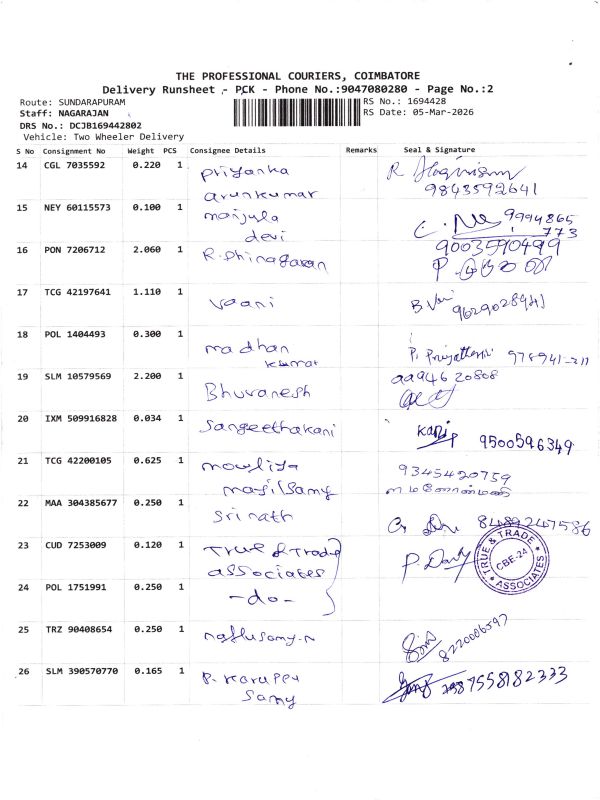 THE PROFESSIONAL COURIERS, COIMBATORE
Delivery Runsheet - PCK - Phone No.:9047080280 - Page No.:2
Route: SUNDARAPURAM
RS No.: 1694428
Staff: NAGARAJAN
RS Date: 05-Mar-2026
DRS No.: DCJB169442802
Vehicle: Two Wheeler Delivery
S No Consignment No Weight PCS Consignee Details Remarks Seal & Signature
14 CGL 7035592 0.220 1 Priyanka
arunkumar
9843592641
15 NEY 60115573 0.100 1 manjula
devi
9994865
773
16 PON 7206712 2.060 1 R.Dhinagaran
9003590499
17 TCG 42197641 1.110 1 vaani
9629028941
18 POL 1404493 0.300 1 madhan
kumar
19 SLM 10579569 2.200 1 Bhuvanesh
9994620808
20 IXM 509916828 0.034 1 Sangeethakani
9500596349
21 TCG 42200105 0.625 1 mouliya
mayilSamy
9345420759
22 MAA 304385677 0.250 1 Srinath
8489247586
23 CUD 7253009 0.120 1 True & Trade
associates
TRUE & TRADE
CBE-24
ASSOCIATES
24 POL 1751991 0.250 1 -do-
25 TRZ 90408654 0.250 1
8220006597
26 SLM 390570770 0.165 1 P. Karuppu
Samy
7558182333